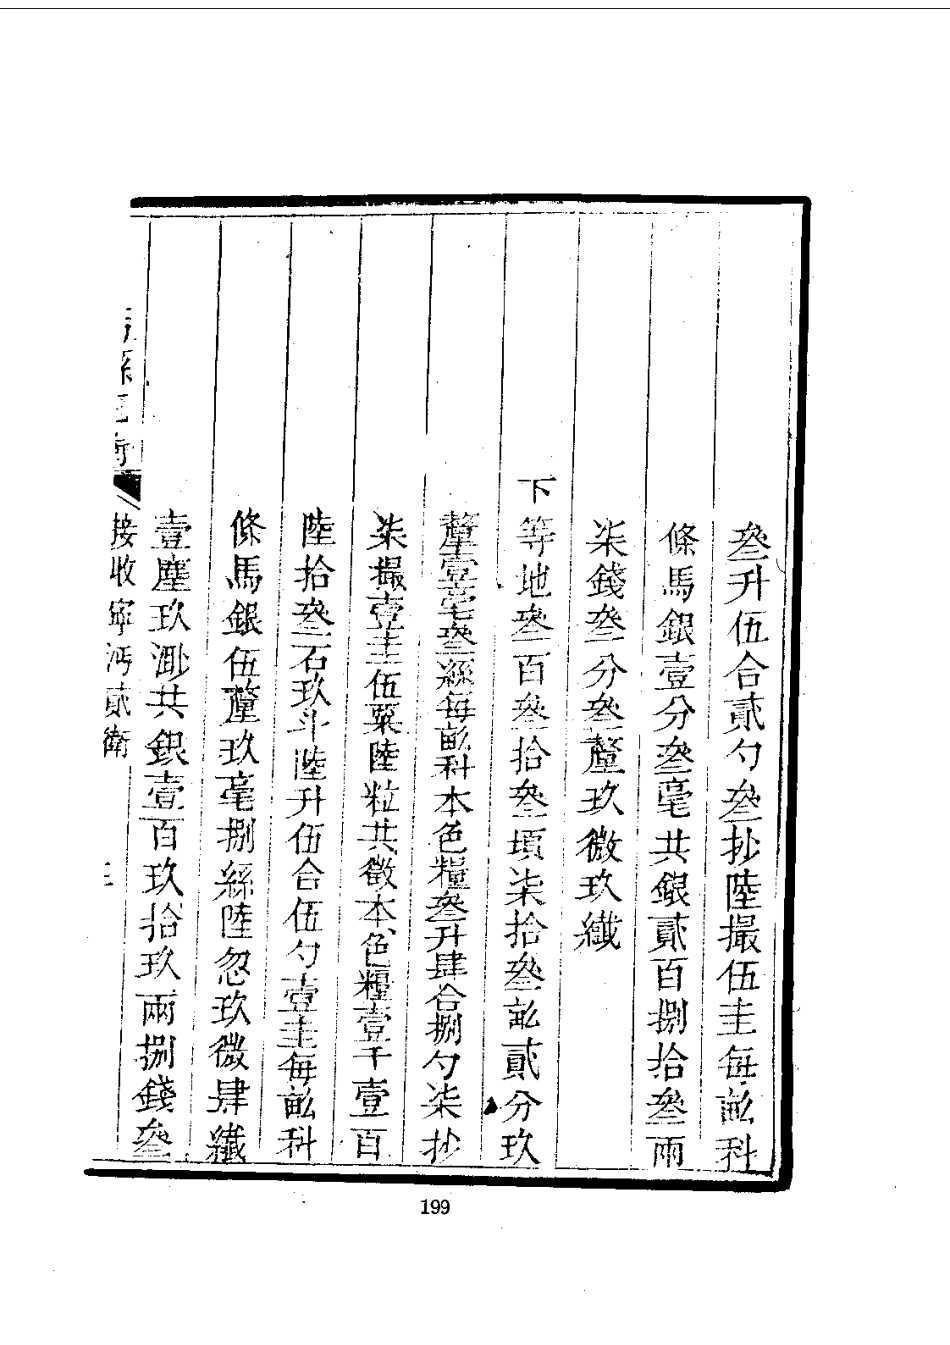 叄升伍合貳勺叄抄陸撮伍圭每畝科
條馬銀壹分叄毫共銀貳百捌拾叄兩
柒錢叄分叄釐玖微玖纖
下等地叄百叄拾叄頃柒拾叄畝貳分玖
釐壹毫叄絲每畝科本色糧叄升肆合捌勺柒抄
柒撮壹圭伍粟陸粒共徵本色糧壹千壹百
陸拾叄石玖斗陸升伍合伍勺壹圭每畝科
條馬銀伍釐玖毫捌絲陸忽玖微肆纖
壹塵玖渺共銀壹百玖拾玖兩捌錢叄
接收寧沔貳衛
199